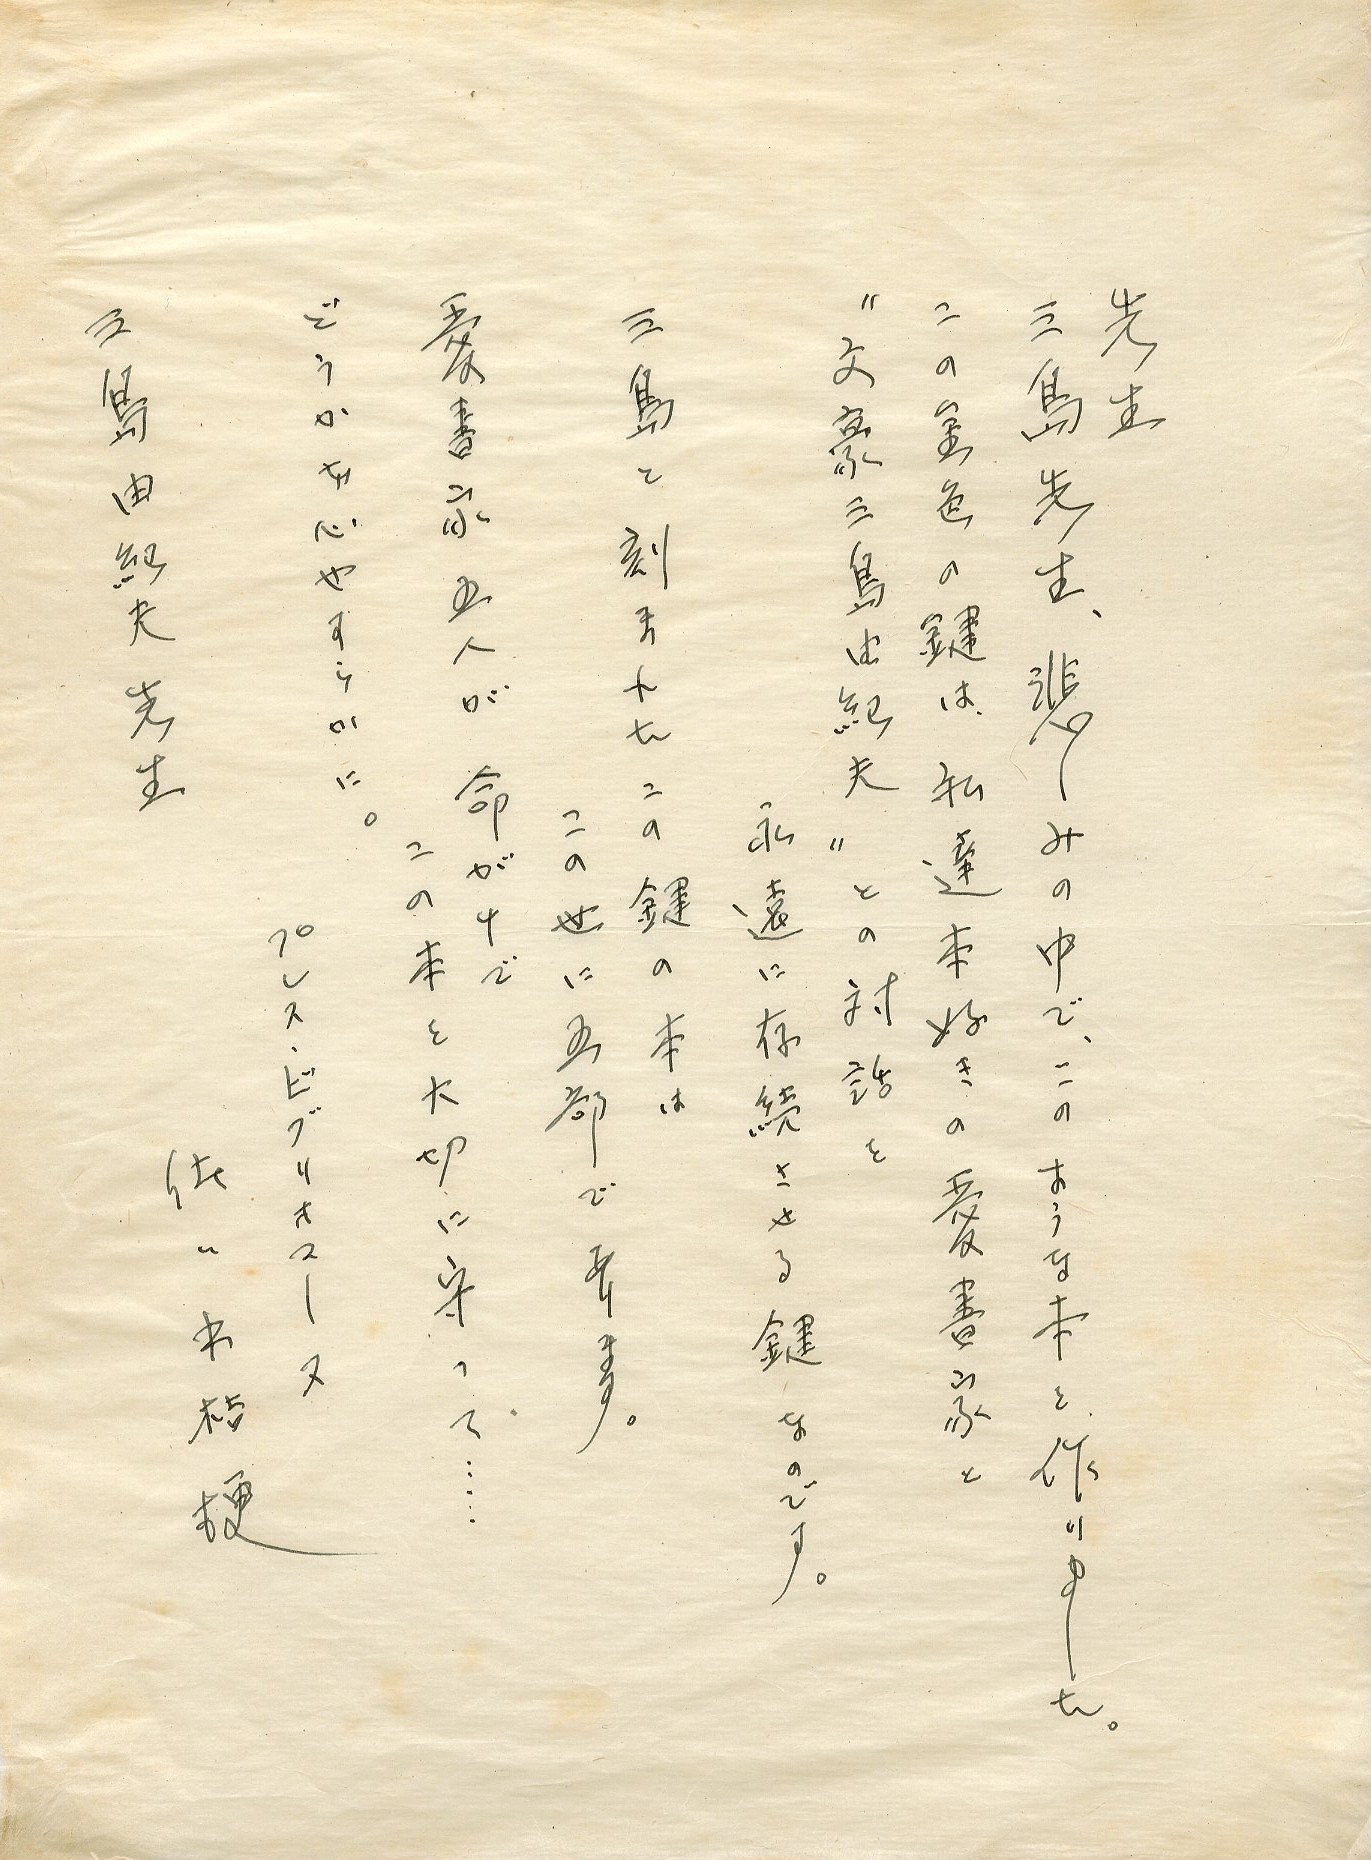 先生
三島先生、悲しみの中で、このような本を作りました。
この金色の鍵は、私達本好きの愛書家と
〝文豪三島由紀夫〟との対話を
永遠に存続させる鍵なのです。
三島と刻まれたこの鍵の本は
この世に五部で有ります。
愛書家五人が命がけで
この本を大切に守って……
どうかお心やすらかに。
プレス・ビブリオマーヌ
佐々木桔梗
三島由紀夫先生